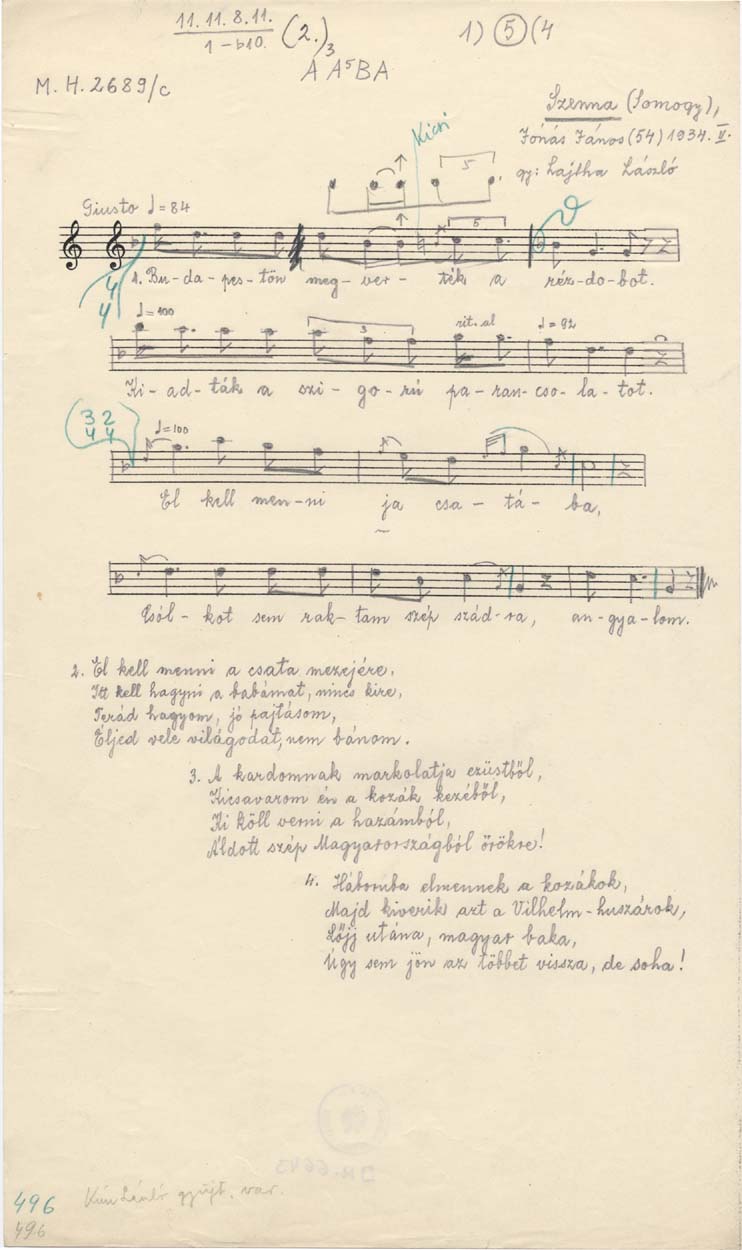 11. 11. 8. 11.
1 - b10.
(2.)3
1) 5 (4
A A5 B A
M. H. 2689/c
Szenna (Somogy),
Jónás János (54) 1934. V.
gy: Lajtha László
Kicsi
5
Giusto ♩=84
5
4
4
1. Bu-da-pes-tön meg-ver-ték a réz-do-bot.
♩=100 3 rit. al ♩=92
Ki-ad-ták a szi-go-rú pa-ran-cso-la-tot.
(3 2
4 4)
♩=100
El kell men-ni ja csa-tá-ba,
Csól-kot sem rak-tam szép szád-ra, an-gya-lom.
2. El kell menni a csata mezejére,
Itt kell hagyni a babámat, nincs kire,
Terád hagyom, jó pajtásom,
Éljed vele világodat, nem bánom.
3. A kardomnak markolatja ezüstből,
Kicsavarom én a kozák kezéből,
Ki köll verni a hazámból,
Áldott szép Magyarországból örökre!
4. Háborúba elmennek a kozákok,
Majd kiverik azt a Vilhelm-huszárok,
Lőjj utána, magyar baka,
Úgy sem jön az többet vissza, de soha!
496
László gyűjt. var.
496